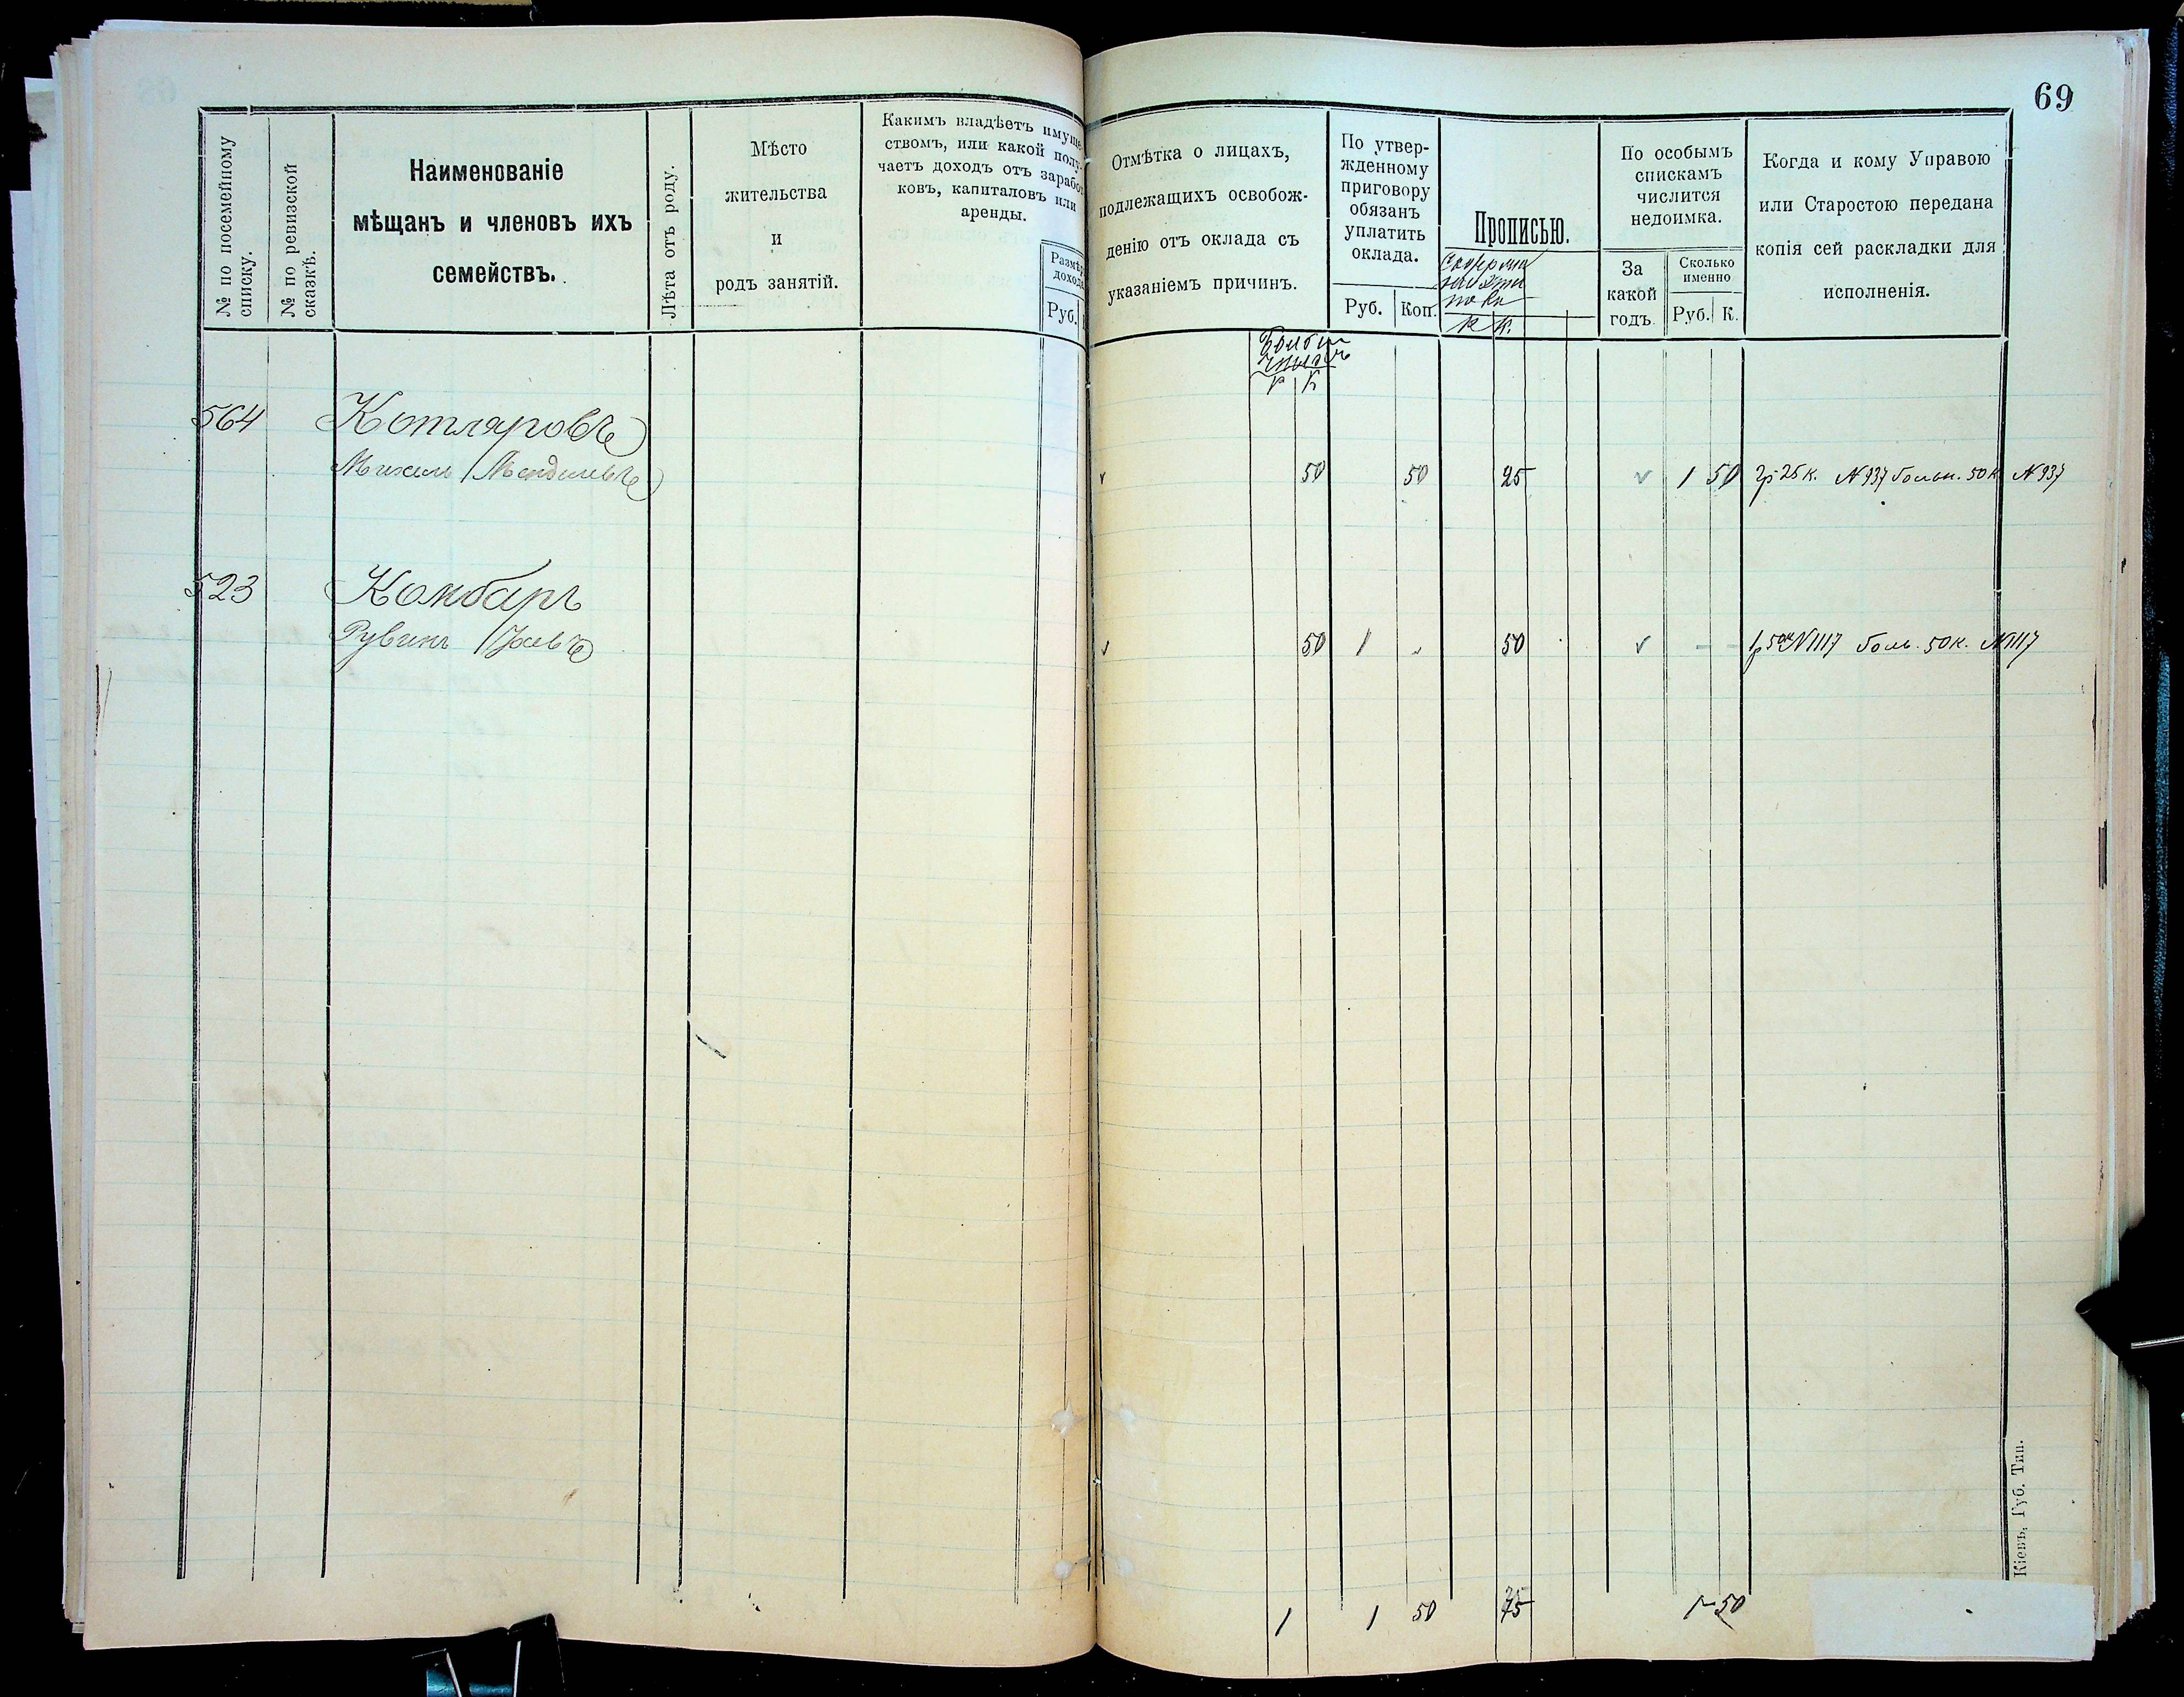 69
№ по посемейному
списку.
№ по ревизской
сказкѣ.
Наименованіе
мѣщанъ и членовъ ихъ
семействъ.
Лѣта отъ роду.
Мѣсто
жительства
и
родъ занятій.
Какимъ владѣетъ имуще-
ствомъ, или какой полу-
чаетъ доходъ отъ заработ-
ковъ, капиталовъ или
аренды.
Размѣръ
дохода
Руб.
Отмѣтка о лицахъ,
подлежащихъ освобож-
денію отъ оклада съ
указаніемъ причинъ.
По утвер-
жденному
приговору
обязанъ
уплатить
оклада.
Руб. Коп.
Прописью.
По особымъ
спискамъ
числится
недоимка.
За
какой
годъ.
Сколько
именно
Руб. К.
Когда и кому Управою
или Старостою передана
копія сей раскладки для
исполненія.
Р К
564 Котляровъ
Михель Менделевъ 50 50 25 1 50 2р 25 к. №937 больн. 50 к №937
523 Комбаръ
Рувинъ 50 1 „ 50 1р 50к №1117 боль. 50 к. №1117
1 1 50 75 1-50
Кіевъ, Губ. Тип.